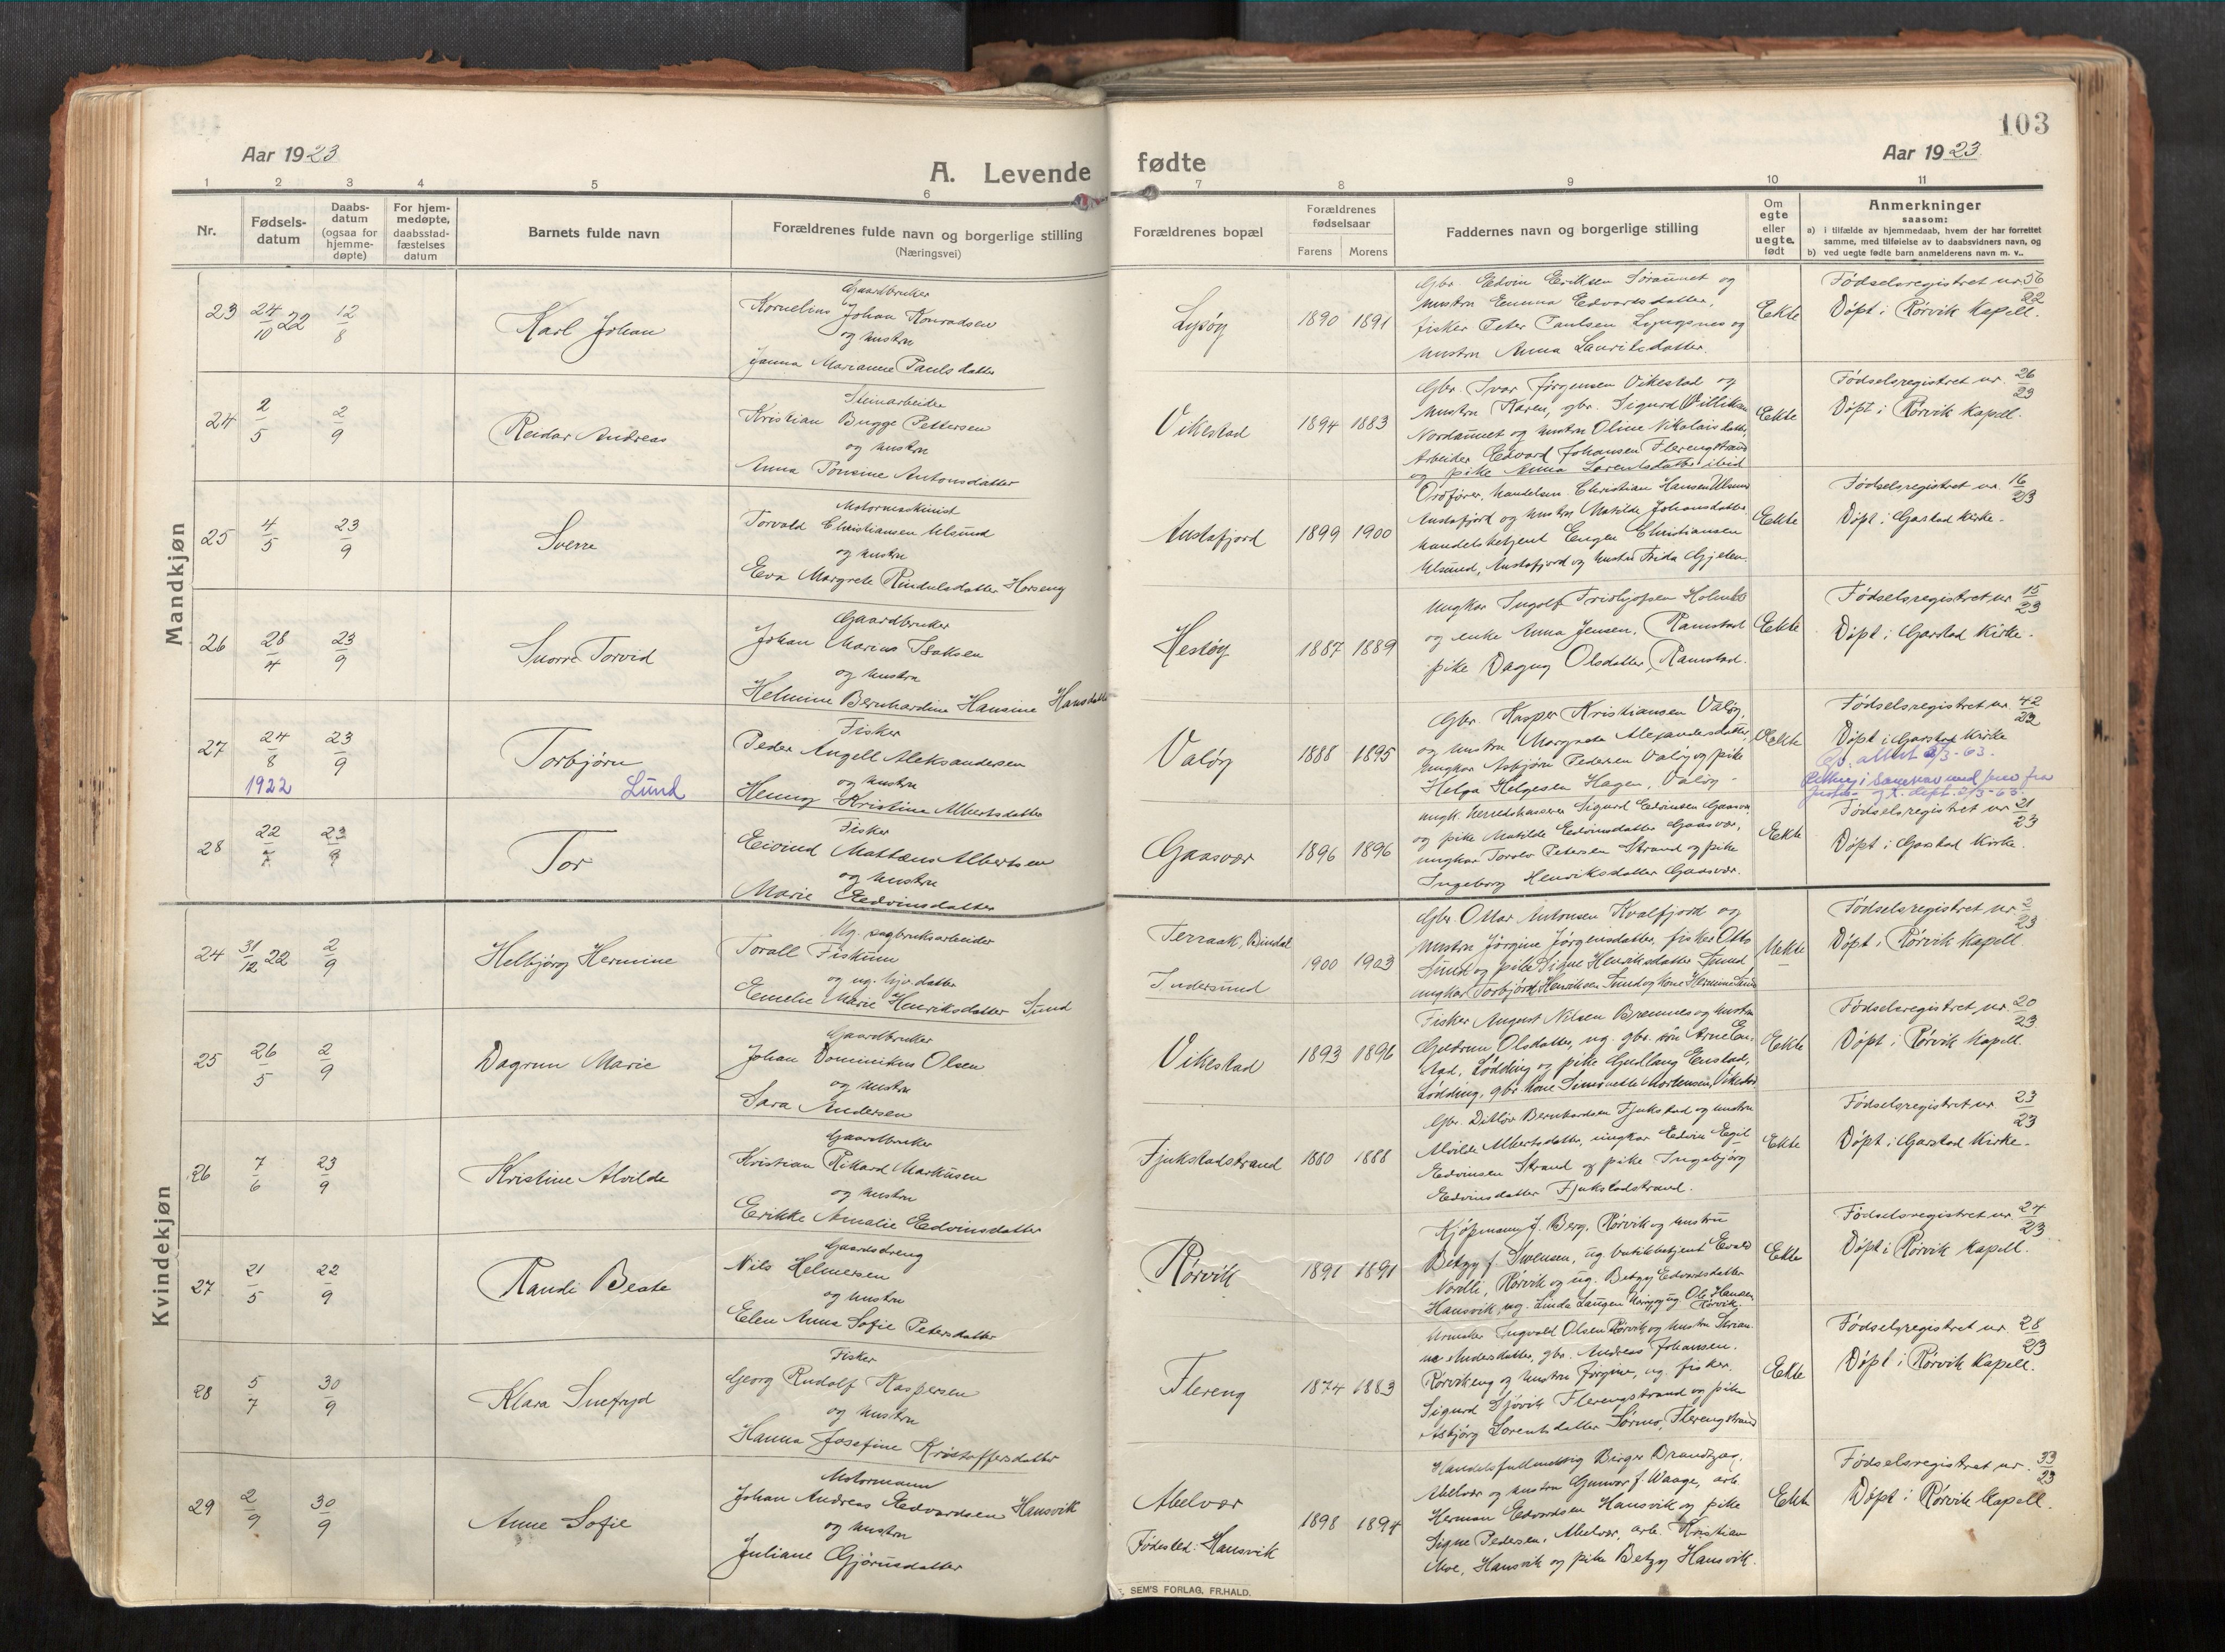 103
Aar 1923
A. Levende fødte
Aar 1923
1 2 3 4 5 6 7 8 9 10 11
Nr.
Fødsels-
datum
Daabs-
datum
(ogsaa for
hjemme-
døpte)
For hjem-
medøpte,
daabsstad-
fæstelses
datum
Barnets fulde navn
Forældrenes fulde navn og borgerlige stilling
(Næringsvei)
Forældrenes bopæl
Forældrenes
fødselsaar
Farens Morens
Faddernes navn og borgerlige stilling
Om
egte
eller
uegte
født
Anmerkninger
saasom:
a) i tilfælde av hjemmedaab, hvem der har forrettet
samme, med tilføielse av to daabsvidners navn, og
b) ved uegte fødte barn anmelderens navn m. v..
Mandkjøn
23 24/10 22 12/8
Karl Johan
Gaardbruker
Kornelius Johan Konradsen
og hustru
Janna Marianne Paulsdatter
Lysøy
1890 1891
Gbr. Edvin Eriksen Søraunet og
hustru Emma Edvardsdatter,
fisker Peter Paulsen Lyngsnes og
hustru Anna Lauritsdatter.
Ekte
Fødselsregistret nr. 56/22
Døpt i Rørvik Kapell.
24 2/5 2/9
Reidar Andreas
Stenarbeider
Kristian Bugge Pettersen
og hustru
Anna Tonsine Antonsdatter
Vikestad
1894 1883
Gbr. Ivar Jørgensen Vikestad og
hustru Karen, gbr. Sigurd Villiksen
Nordaunet og hustru Oline Nikolaisdatter,
Arbeider Edvard Johansen Flerengstrand
og pike Anna Lorentsdatter ibid
Ekte
Fødselsregistret nr. 26/23
Døpt i Rørvik Kapell.
25 4/5 23/9
Sverre
Motormaskinist
Torvald Christiansen Ulsund
og hustru
Eva Margrete Rindulsdatter Horseng
Austafjord
1899 1900
Ordfører, handelsm. Christian Hansen Ulsund
Austafjord og hustru Matilde Johansdatter
handelsbetjent Eugen Christiansen
Ulsund, Austafjord og hustru Frida Gjelen
Ekte
Fødselsregistret nr. 16/23
Døpt i Garstad Kirke.
26 28/4 23/9
Snorre Torvid
Gaardbruker
Johan Marius Isaksen
og hustru
Helmine Bernhardine Hansine Hansdatter
Hestøy
1887 1889
Ungkar Ingolf Fridthjofsen Holmset
og enke Anna Jensen, Ramstad
pike Dagny Olsdatter, Ramstad.
Ekte
Fødselsregistret nr. 15/23
Døpt i Garstad Kirke.
27 24/8 23/9
1922
Torbjørn
Lund
Fisker
Peder Angell Aleksandersen
og hustru
Henny Kristine Albertsdatter
Valøy
1888 1895
Gbr. Kasper Kristiansen Valøy,
og hustru Margrete Alexandersdatter,
ungkar Asbjørn Pedersen Valøy og pike
Helga Helgesen Hagen, Valøy
Ekte
Fødselsregistret nr. 42/22
Døpt i Garstad Kirke
28 22/7 23/9
Tor
Fisker
Eivind Mattæus Albertsen
og hustru
Marie Edvinsdatter
Gaasvær
1896 1896
ungk. herredskasserer Sigurd Edvinsen Gaasvær
og pike Matilde Edvinsdatter Gaasvær,
ungkar Torolv Petersen Strand og pike
Ingeborg Henriksdatter Gaasvær.
Ekte
Fødselsregistret nr. 21/23
Døpt i Garstad Kirke.
Kvindekjøn
24 31/12 22 2/9
Helbjørg Hermine
Ug. sagbruksarbeider
Torall Fiskum
og ug. hjv. datter
Emelie Marie Henriksdatter Sund
Terraak, Bindal
Indersund
1900 1903
Gbr. Ottar Antonsen Kvalfjord og
hustru Jørgine Jørgensdatter, fisker Otto
Sund og pike Signe Henriksdatter Sund
ungkar Torbjørn Henriksen Sund og kone Hermine Sund
Uekte
Fødselsregistret nr. 2/23
Døpt i Rørvik Kapell
25 26/5 2/9
Dagrun Marie
Gaardbruker
Johan Dominikus Olsen
og hustru
Sara Andersen
Vikestad
1893 1896
Fisker August Nilsen Bremnes og hustru
Gudrun Olsdatter, ug. gbr. søn Arne En-
stad, Lødding og pike Gudlaug Enstad,
Lødding, gbr. kone Simonette Mortensen, Vikestad
Ekte
Fødselsregistret nr. 20/23
Døpt i Rørvik Kapell.
26 7/6 23/9
Kristine Alvilde
Gaardbruker
Kristian Rikard Markussen
og hustru
Erikke Amalie Edvinsdatter
Fjukstadstrand
1880 1888
Gbr. Ditløv Bernhardsen Fjukstad og hustru
Alvilde Albertsdatter, ungkar Edvin Egil
Edvinsen Strand og pike Ingebjørg
Edvinsdatter Fjukstadstrand.
Ekte
Fødselsregistret nr. 23/23
Døpt i Garstad Kirke.
27 21/5 22/9
Randi Beate
Gaardsdreng
Nils Helmersen
og hustru
Elen Anna Sofie Petersdatter
Rørvik
1891 1891
Kjøpmann J. Berg, Rørvik og hustru
Betzy f. Svensen, ug. butikbetjent Evald
Nordli, Rørvik og ug. Betzy Edvardsdatter
Hansvik, ug. Linda Laugen og ug. Ole Hansen
Rørvik.
Ekte
Fødselsregistret nr. 24/23
Døpt i Rørvik Kapell.
28 5/7 30/9
Klara Snefryd
Fisker
Georg Rudolf Kaspersen
og hustru
Hanna Josefine Kristoffersdatter
Flereng
1874 1883
Urmaker Ingvald Olsen Rørvik og hustru
Andersdatter, gbr. Andreas Johansen.
Rørvikeng og hustru Jørgine, ug. fisker
Sigurd Sjøvik Flerengstrand og pike
Asbjørg Lorentsdatter Sørmo, Flerengstrand
Ekte
Fødselsregistret nr. 28/23
Døpt i Rørvik Kapell.
29 2/9 30/9
Anne Sofie
Motormann
Johan Andreas Edvardsen Hansvik
og hustru
Juliane Gjørusdatter
Abelvær
Fødested: Hansvik
1898 1894
Handelsfullmektig Birger Brandtzæg,
Abelvær og hustru Gunvor f. Waage, arb.
Herman Edvardsen Hansvik og pike
Signe Pedersen, Abelvær, arb. Kristian
Moe, Hansvik og pike Betzy Hansvik.
Ekte
Fødselsregistret nr. 33/23
Døpt i Rørvik Kapell.
SEM'S FORLAG, FR.HALD.